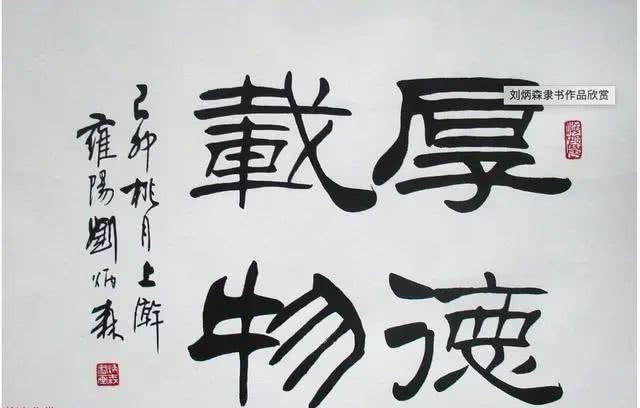 厚德
載物
己卯桃月上澣
雍陽劉炳森
刘炳森隶书作品欣赏